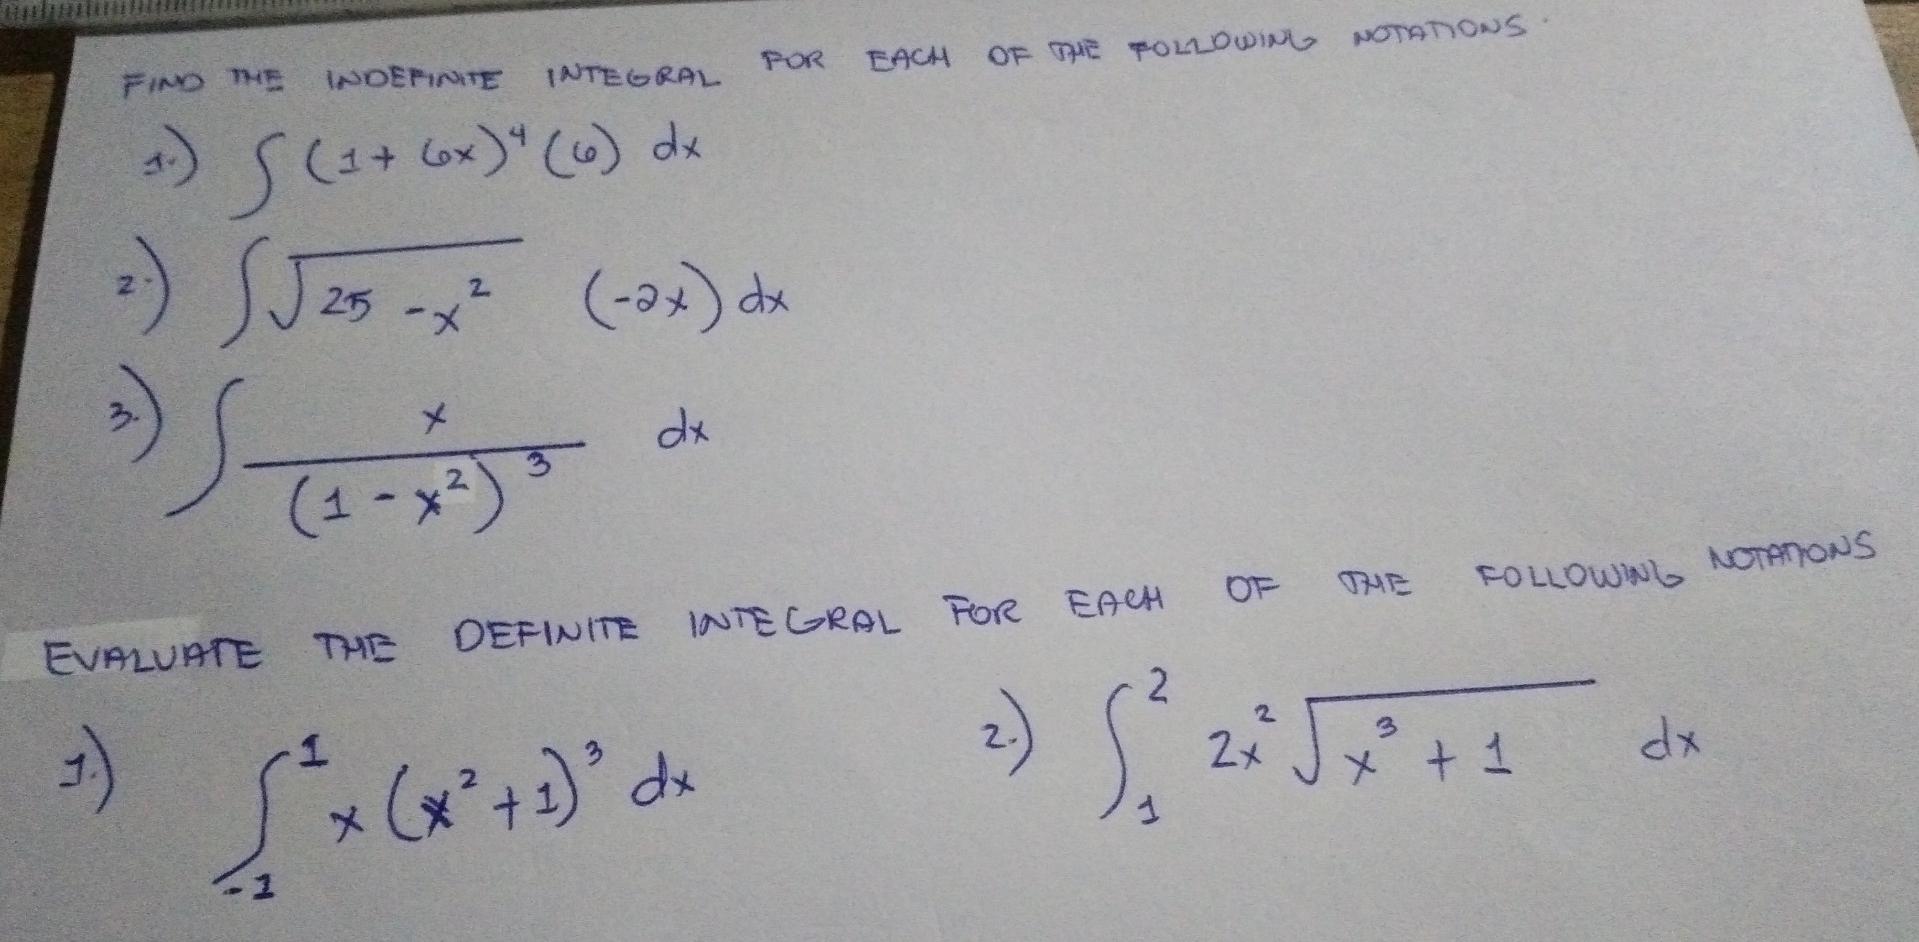 FIND THE INDEFINITE INTEGRAL FOR EACH OF THE FOLLOWING NOTATIONS.
1.) ∫ (1 + 6x)⁴ (6) dx
2.) ∫ √(25 - x²) (-2x) dx
3.) ∫ x / (1 - x²)³ dx
EVALUATE THE DEFINITE INTEGRAL FOR EACH OF THE FOLLOWING NOTATIONS
1.) ∫₋₁¹ x (x² + 1)³ dx
2.) ∫₁² 2x² √(x³ + 1) dx